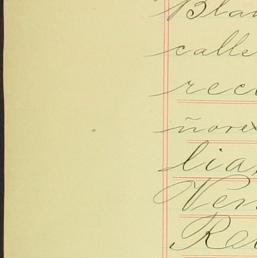 Blan
calle
rec
ñores
lia
Ven
Re